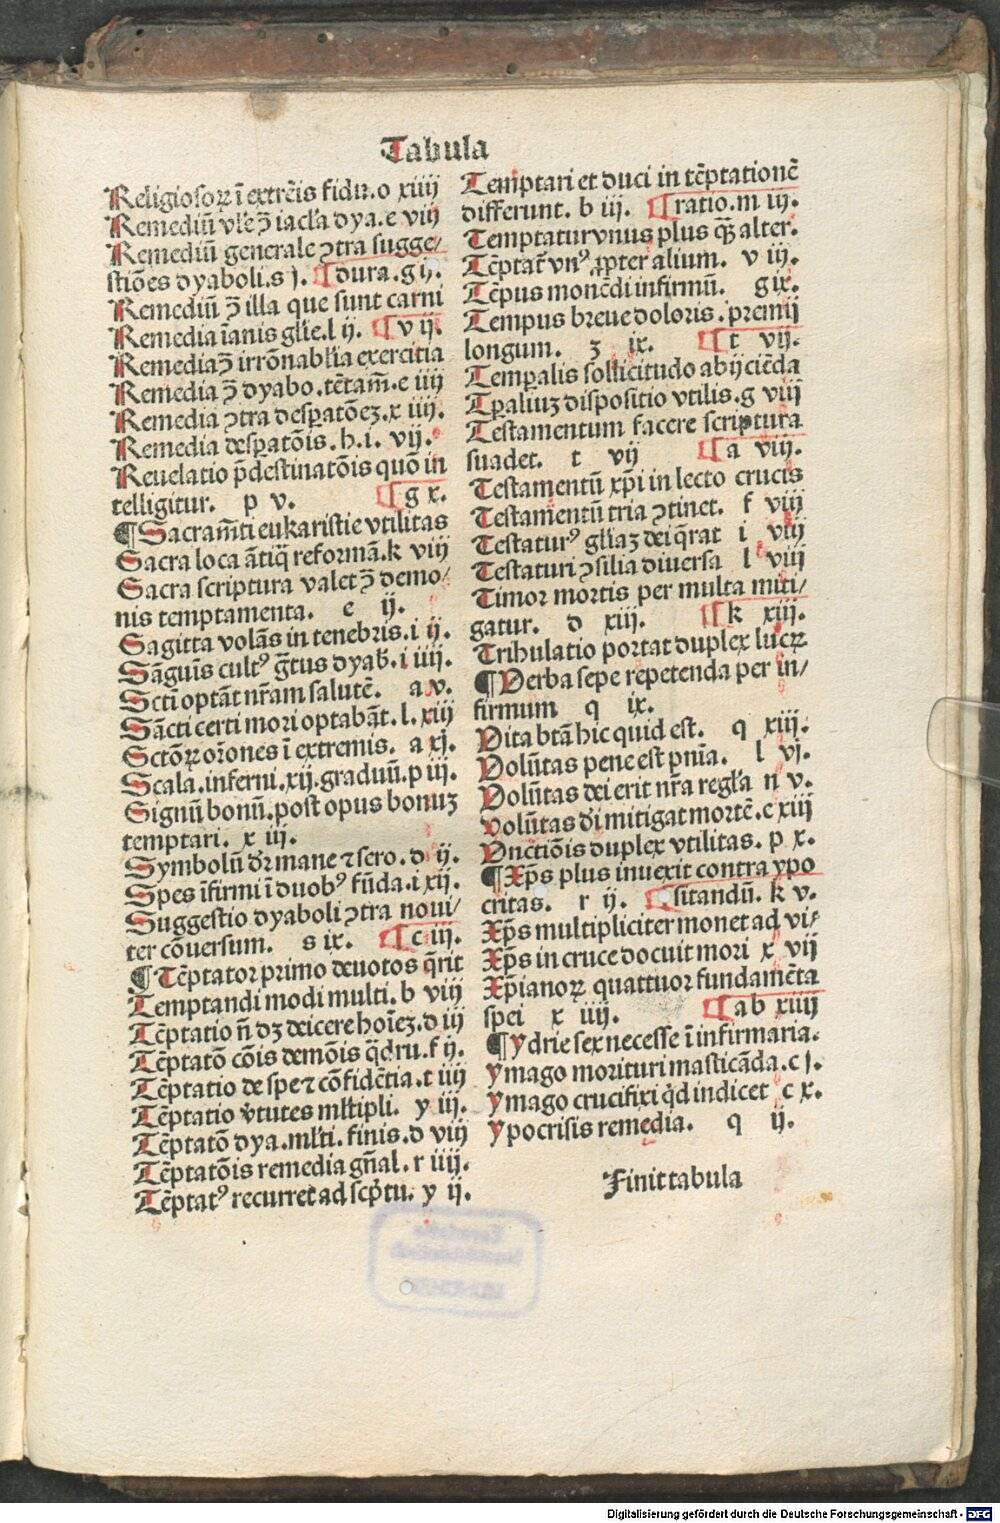 Tabula
Religiosoꝝ ī extrēis fidu. o xiiij
Remediū vl'e ꝯ̄ iacl'a dya. e viij
Remediū generale ꝯtra sugge/
stiōes dyaboli. s j. ¶ dura. g ij.
Remediū ꝯ̄ illa que sunt carni
Remedia īanis gl'ie. l ij. ¶ v ij.
Remedia ꝯ̄ irrōnabl'ia exercitia
Remedia ꝯ̄ dyabo. tētam̄. e iiij
Remedia ꝯtra desꝑatōeꝫ. x iiij.
Remedia desꝑatōis. h. i. vij.
Reuelatio p̄destinatōis quō in
telligitur. p v. ¶ g x.
¶ Sacram̄ti eukaristie vtilitas
Sacra loca ātiq̄ reformā. k viij
Sacra scriptura valet ꝯ̄ demo/
nis temptamenta. e ij.
Sagitta volās in tenebris. i ij.
Sāguīs cultꝰ ḡtus dyab̄. i iiij.
Scti optāt nr̄am salutē. a v.
Sācti certi mori optabāt. l. xiij
Sctōꝝ or̄ones ī extremis. a xj.
Scala. inferni. xij. graduū. p iij.
Signū bonū. post opus bonuꝫ
temptari. x iij.
Symbolū dr̄ mane ⁊ sero. d ij.
Spes īfirmi ī duobꝰ fūda. i xij.
Suggestio dyaboli ꝯtra noui/
ter cōuersum. s ix. ¶ c iij.
¶ Tēptator primo deuotos q̄rit
Temptandi modi multi. b viij
Tēptatio n̄ dꝫ deicere hoīeꝫ. d iij
Tēptatō cōis demōis q̄dru. f ij.
Tēptatio de spe ⁊ cōfidētia. t iiij
Tēptatio v̄tutes ml'tipli. y iij.
Tēptatō dya. ml'ti. finis. d viij
Tēptatōis remedia gn̄al. r iiij.
Tēptatꝰ recurret ad scp̄tu. y ij.
Temptari et duci in tēptationē
differunt. b iij. ¶ ratio. m iij.
Temptatur vnus plus qꝫ alter.
Tēptat̄ vnꝰ ꝓpter alium. v iij.
Tēpus monēdi infirmū. g ix.
Tempus breue doloris. premij
longum. ꝫ ix. ¶ t vij.
Temꝑalis sollicitudo abijciēda
Tꝑaliuꝫ dispositio vtilis. g viij
Testamentum facere scriptura
suadet. t vij ¶ a viij.
Testamentū xp̄i in lecto crucis
Testamentū tria ꝯtinet. f viij
Testaturꝰ gl'iaꝫ dei q̄rat i viij
Testaturi ꝯsilia diuersa l viij
Timor mortis per multa miti/
gatur. d xiij. ¶ k xiij.
Tribulatio portat duplex lucꝝ
¶ Verba sepe repetenda per in/
firmum q ix.
Vita btā hic quid est. q xiij.
Volūtas pene est pn̄ia. l vj.
Volūtas dei erit nr̄a regl'a n v.
Volūtas di mitigat mortē. c xiij
Vnctiōis duplex vtilitas. p x.
¶ Xp̄s plus inuexit contra ypo
critas. r ij. ¶ sitandū. k v.
Xp̄s multipliciter monet ad vi/
Xp̄s in cruce docuit mori x vij
Xp̄ianoꝝ quattuor fundamēta
spei x iiij. ¶ ab xiiij
¶ Ydrie sex necesse ī infirmaria.
Ymago morituri masticāda. c j.
Ymago crucifixi qd̄ indicet c x.
Ypocrisis remedia. q ij.
Finit tabula
Digitalisierung gefördert durch die Deutsche Forschungsgemeinschaft - DFG